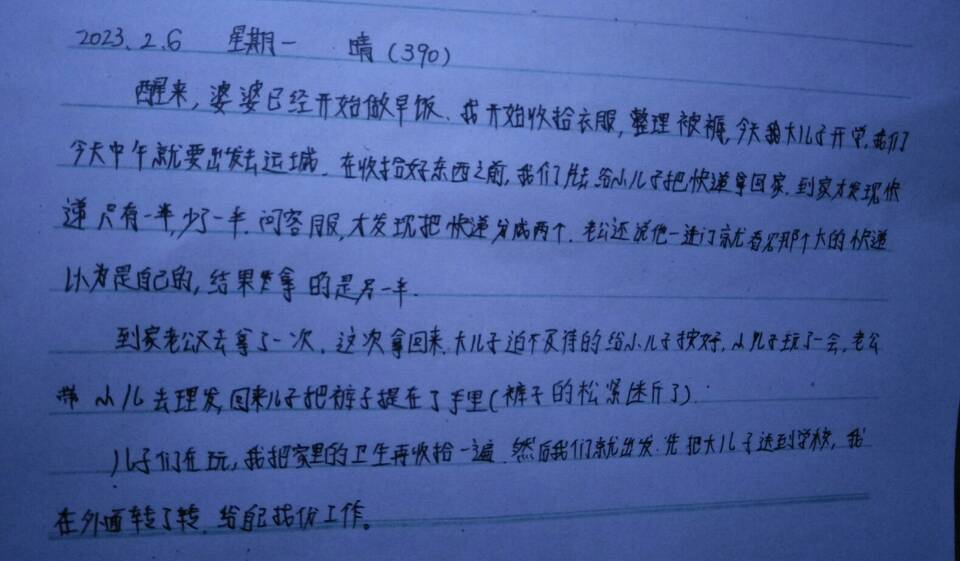 2023.2.6 星期一 晴(390)
醒来,婆婆已经开始做早饭.我开始收拾衣服,整理被褥,今天我大儿子开学,我们
今天中午就要出发去运城.在收拾好东西之前,我们先去给小儿子把快递拿回家.到家才发现快
递只有一半,少了一半.问客服,才发现把快递分成两个.老公还说他一进门就看见那个大的快递
以为是自己的,结果拿的是另一半.
到家老公又去拿了一次.这次拿回来,大儿子迫不及待的给小儿子按好,小儿子玩了一会,老公
带小儿去理发,回来儿子把裤子提在了手里(裤子的松紧迷斤了).
儿子们在玩,我把家里的卫生再收拾一遍.然后我们就出发.先把大儿子送到学校,我
在外面转了转.给自己找份工作。